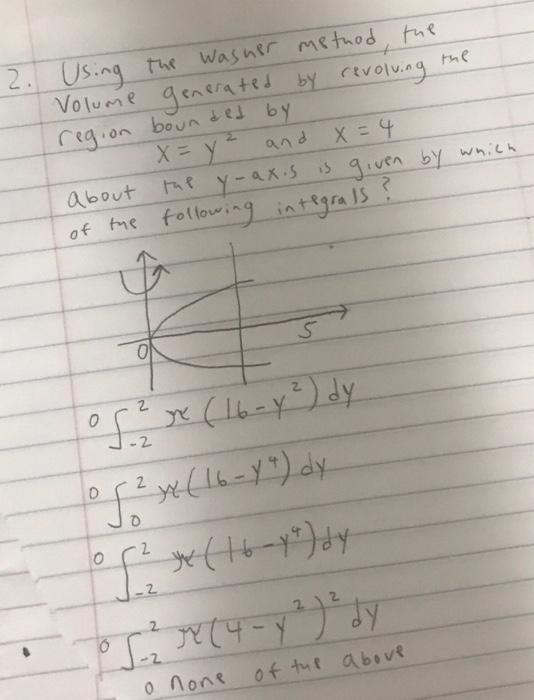 2. Using the washer method, the
volume generated by revolving the
region bounded by
x = y² and x = 4
about the y-axis is given by which
of the following integrals?
0 5
○ ∫₋₂² π(16-y²) dy
○ ∫₀² π(16-y⁴) dy
○ ∫₋₂² π(16-y⁴) dy
○ ∫₋₂² π(4-y²)² dy
○ none of the above